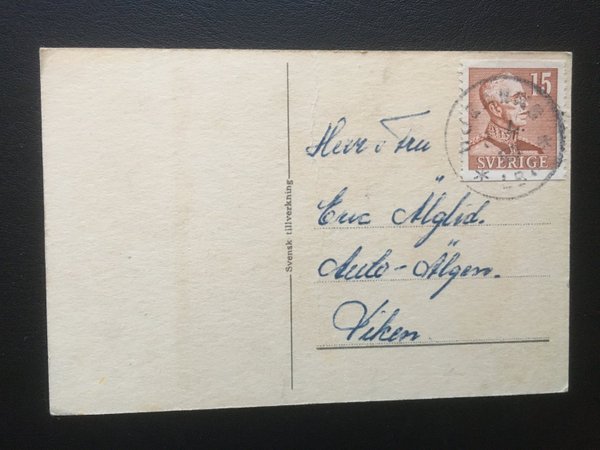 15
SVERIGE
Svensk tillverkning
Herr o Fru
Eric Älglid.
Auto-Älgen.
Viken.